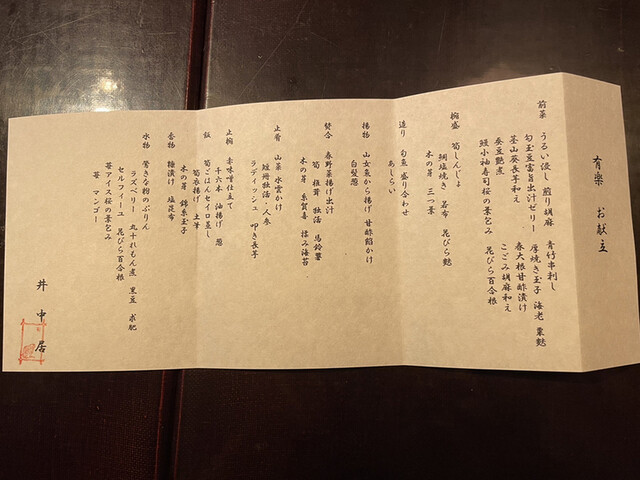 有楽 お献立
前菜 うるい浸し 煎り胡麻 青竹串刺し
勾玉豆富旨出汁ゼリー 厚焼き玉子 海老 粟麩
茎山葵長芋和え 春大根甘酢漬け
蚕豆艶煮 こごみ胡麻和え
鰻小袖寿司桜の葉包み 花びら百合根
椀盛 筍しんじょ
鯛塩焼き 若布 花びら麩
木の芽 三つ葉
造り 旬魚 盛り合わせ
あしらい
揚物 山女魚から揚げ 甘酢餡かけ
白髪葱
焚合 春野菜揚げ出汁
筍 椎茸 独活 馬鈴薯
木の芽 糸賀喜 揉み海苔
止肴 山菜 水雲かけ
短冊独活・人参
ラディッシュ 叩き長芋
止椀 赤味噌仕立て
千六本 油揚げ 葱
飯 筍ごはんセイロ蒸し
筍衣揚げ 土筆
木の芽 錦糸玉子
香物 糠漬け 塩昆布
水物 鶯きな粉のぷりん
ラズベリー 丸十れもん煮 黒豆 求肥
セルフィーユ 花びら百合根
苺アイス桜の葉包み
苺 マンゴー
井中居